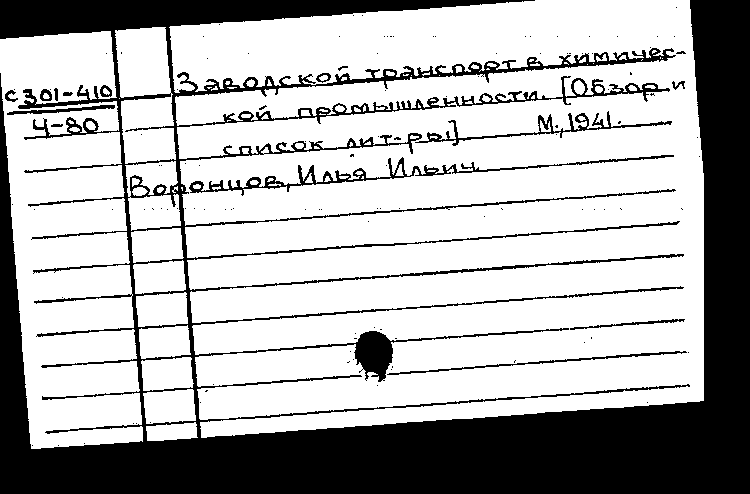 с 301-410
4-80
Заводской транспорт в химичес-
кой промышленности. [Обзор и
список лит-ры] М., 1941.
Воронцов, Илья Ильич